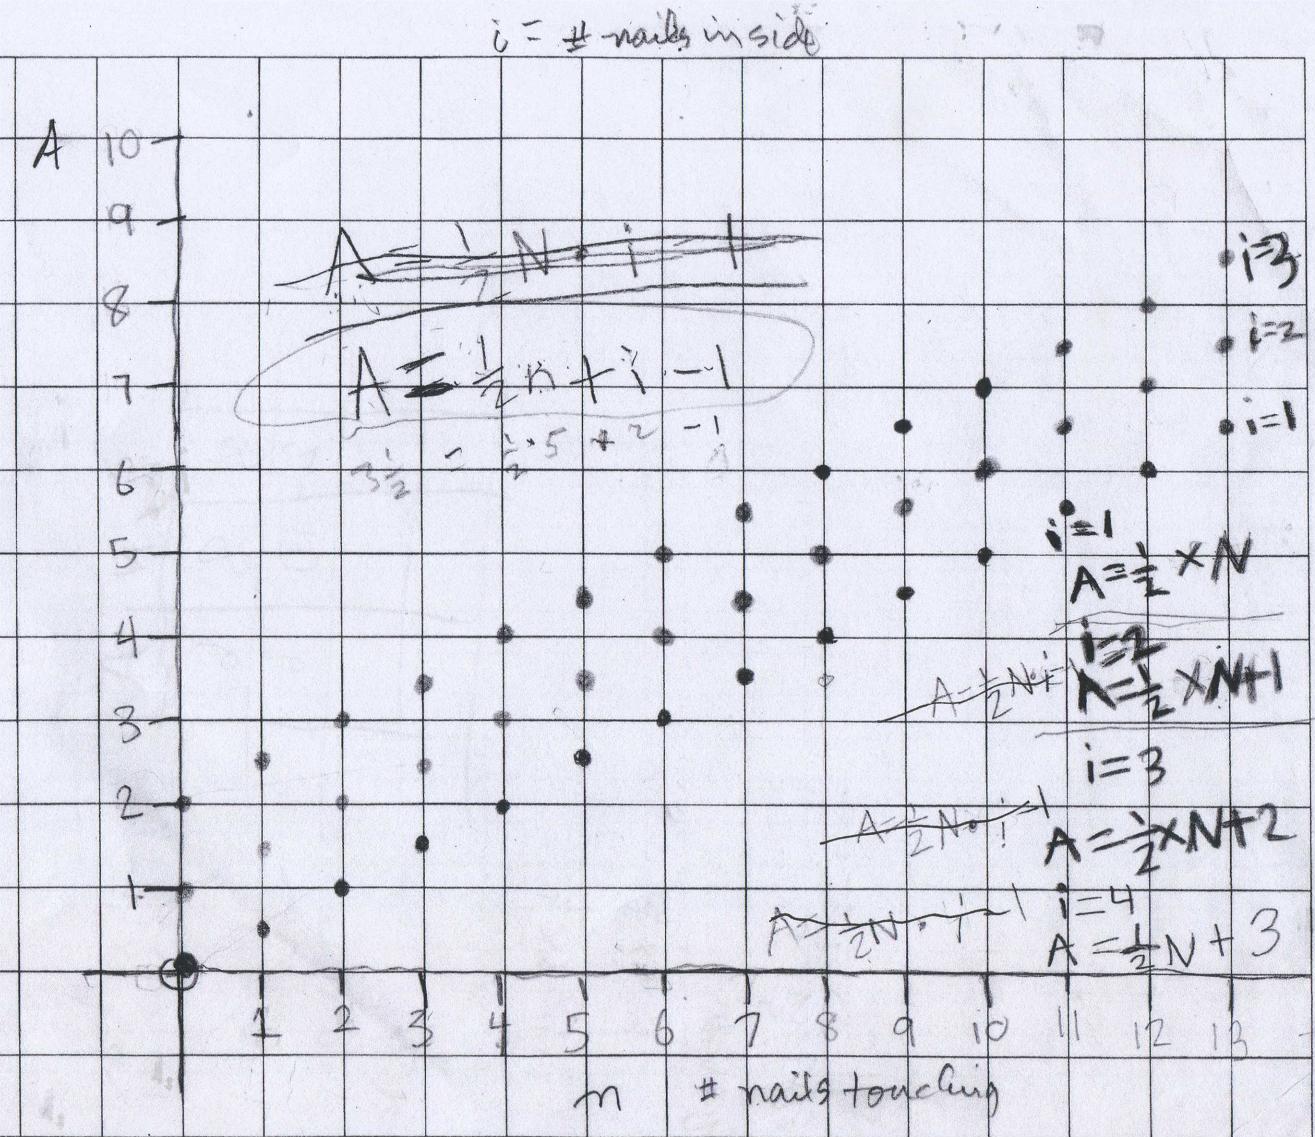 i = # nails inside
A
10
9
8
7
6
5
4
3
2
1
A = 1/2 N · i - 1
A = 1/2 n + i - 1
3 1/2 = 1/2 · 5 + 2 - 1
i=3
i=2
i=1
i=1
A = 1/2 × N
i=2
A = 1/2 N · i - 1
A = 1/2 × N+1
i=3
A = 1/2 N · i - 1
A = 1/2 × N+2
i=4
A = 1/2 N · i - 1
A = 1/2 N + 3
1 2 3 4 5 6 7 8 9 10 11 12 13
n # nails touching